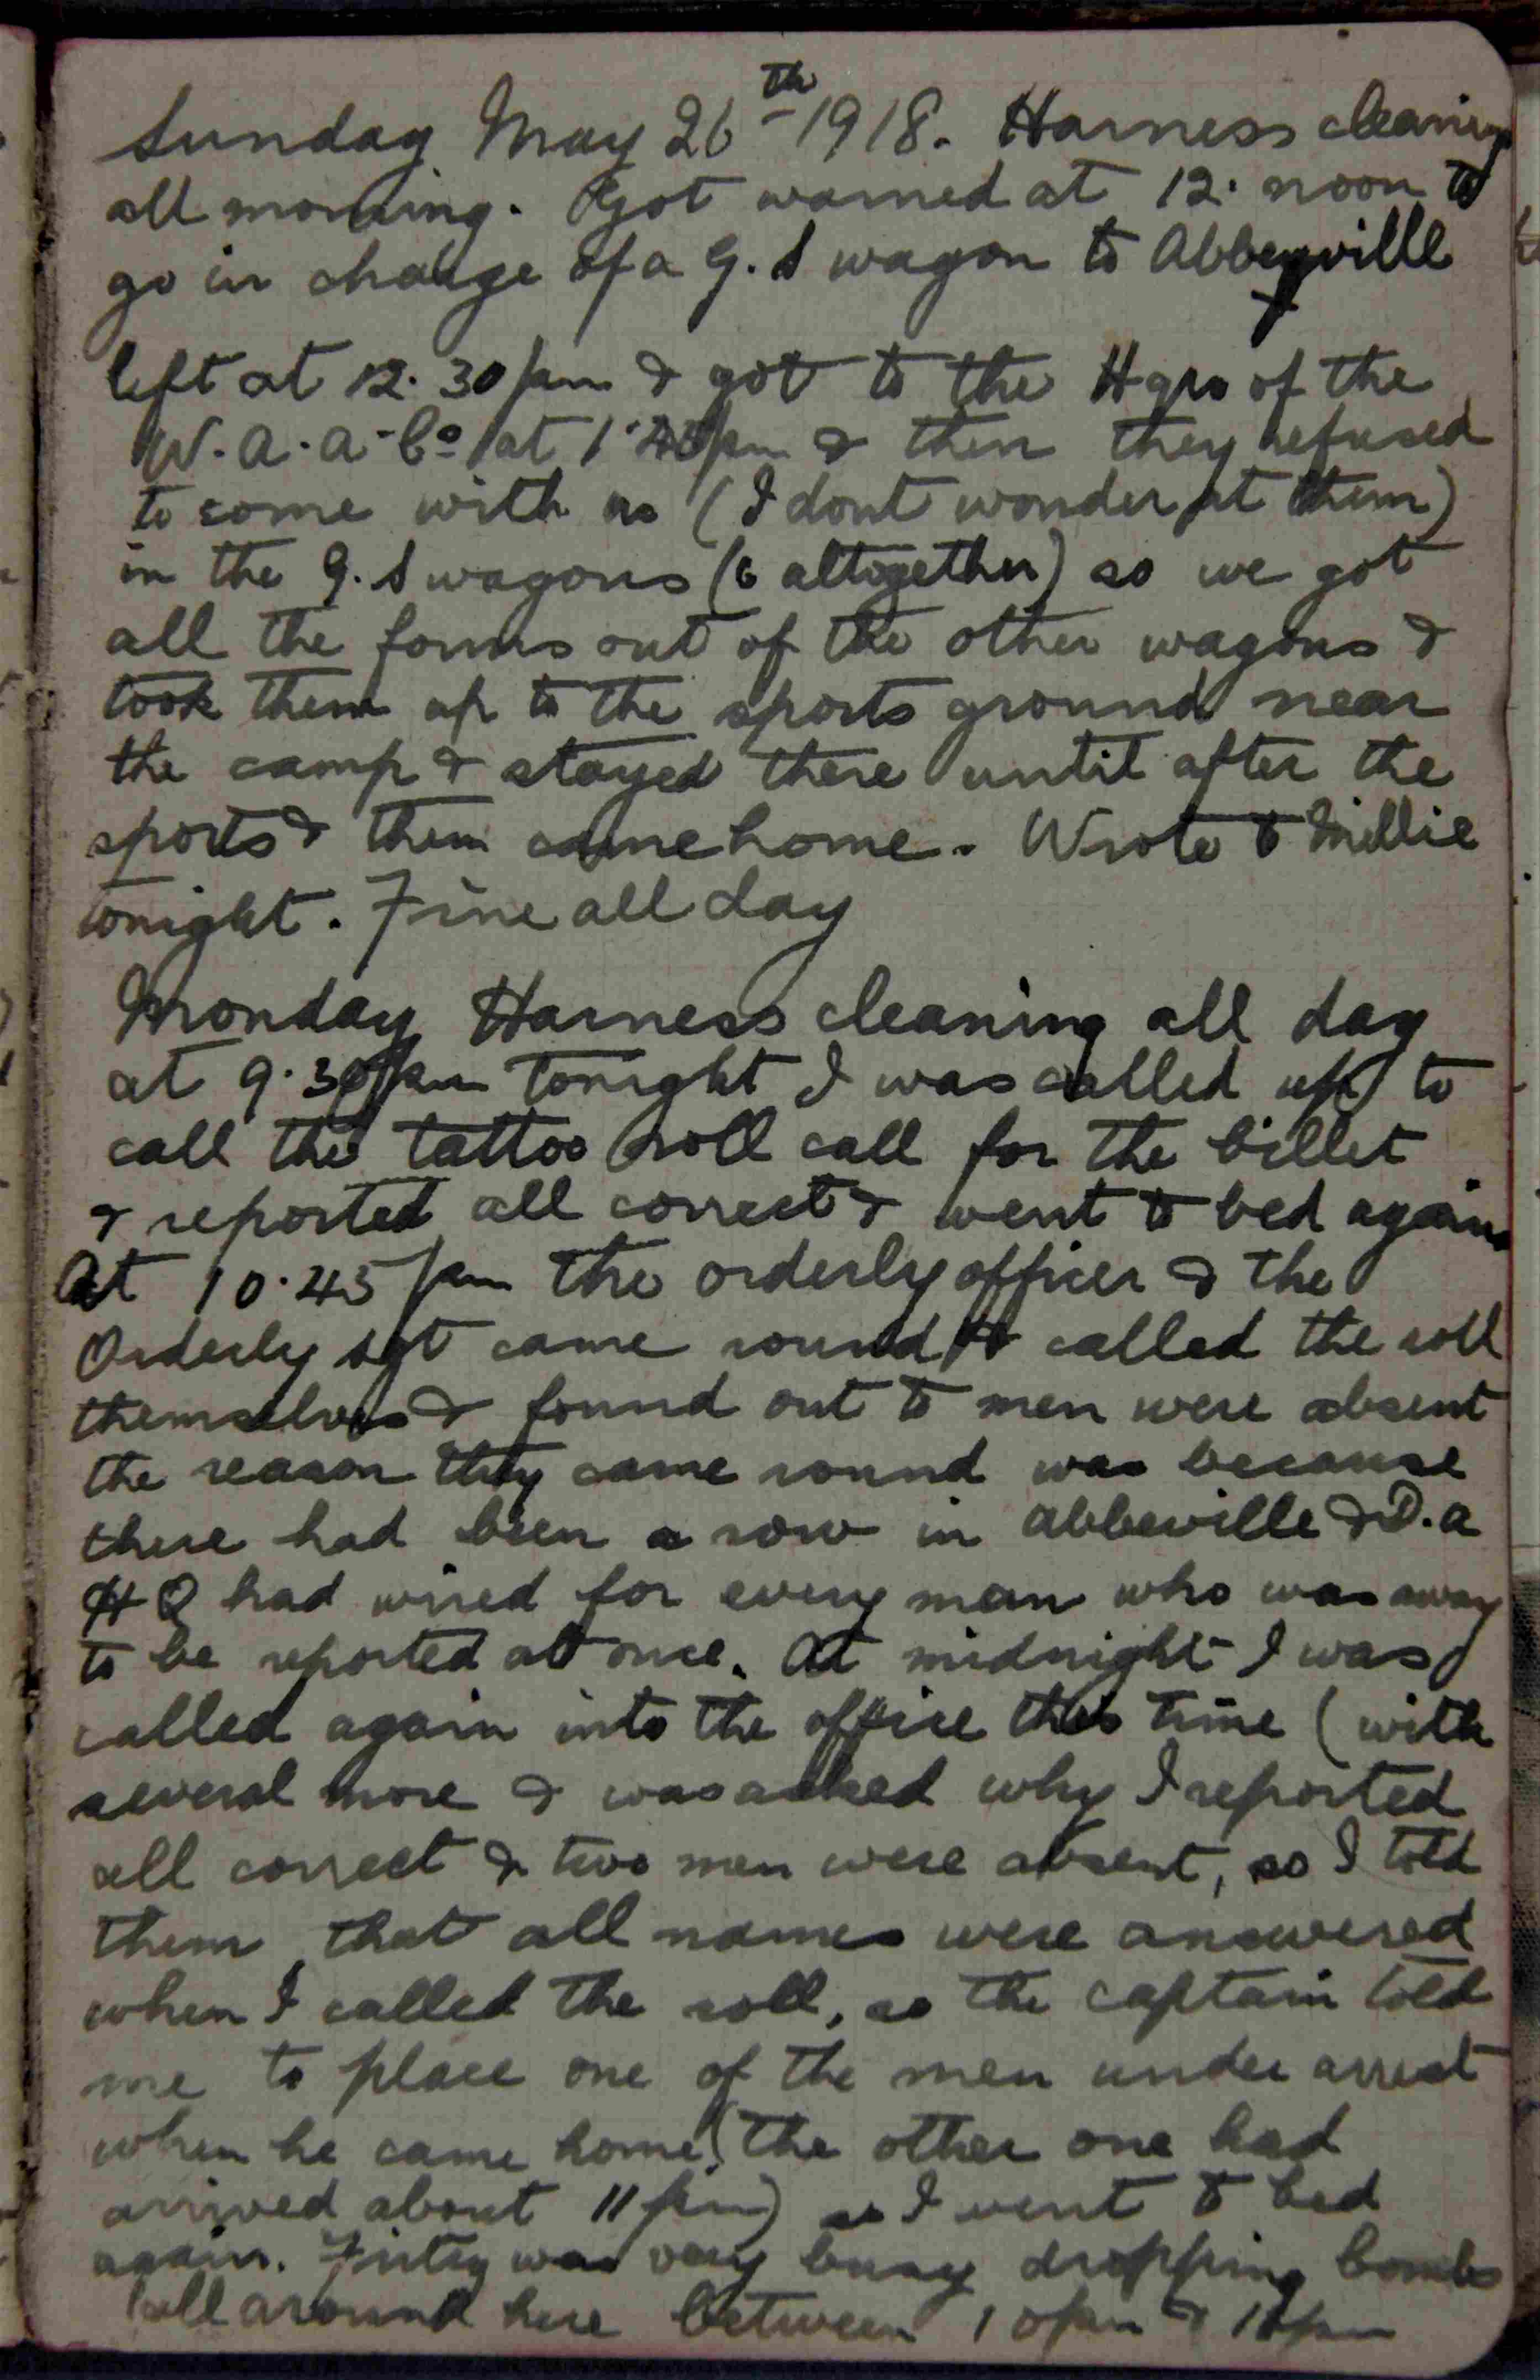 Sunday May 26th 1918. Harness cleaning
all morning. Got warned at 12. noon to
go in charge of a G.S wagon to Abbeyville
left at 12.30 pm & got to the Hqrs of the
W.A.A.Co at 1.45 pm & then they refused
to come with us (I dont wonder at them)
in the G.S wagons (6 altogether) so we got
all the forms out of the other wagons &
took them up to the sports ground near
the camp & stayed there until after the
sports & then came home. Wrote to Millie
tonight. Fine all day
Monday Harness cleaning all day
at 9.30 pm tonight I was called up to
call the tattoo roll call for the billet
& reported all correct & went to bed again
At 10.45 pm the orderly officer & the
Orderly sgt came round & called the roll
themselves & found out to men were absent
the reason they came round was because
there had been a row in Abbeville & D.A
HQ had wired for every man who was away
to be reported at once. At midnight I was
called again into the office this time (with
several more & was asked why I reported
all correct & two men were absent, so I told
them that all names were answered
when I called the roll, so the captain told
me to place one of the men under arrest
when he came home (the other one had
arrived about 11 pm) so I went to bed
again. Fritz was very busy dropping bombs
all around here between 10pm &